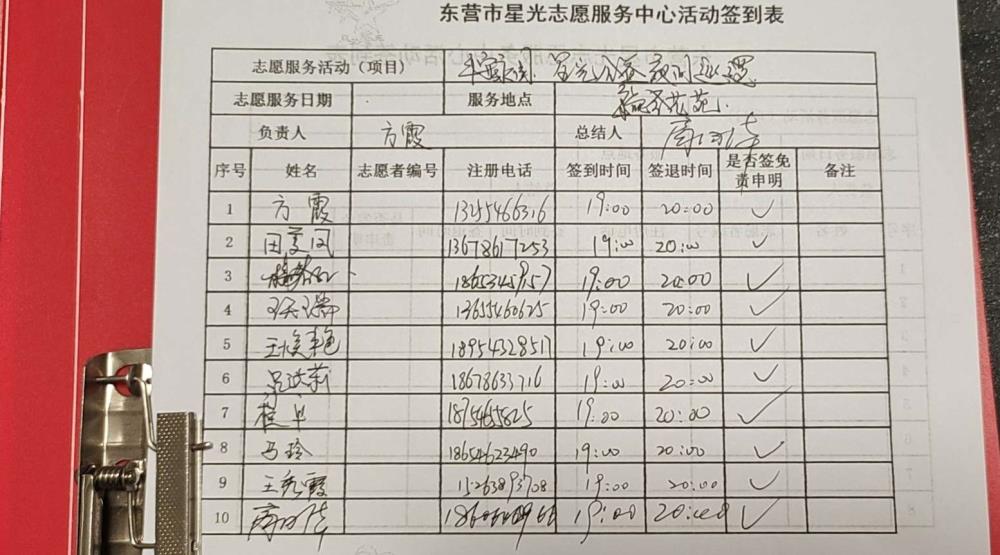 东营市星光志愿服务中心活动签到表
志愿服务活动（项目） 星光 夜间巡逻
志愿服务日期 服务地点 苑
负责人 方霞 总结人
序号 姓名 志愿者编号 注册电话 签到时间 签退时间 是否签免责申明 备注
1 方霞 13255466316 19:00 20:00 ✓
2 田爱凤 13678617253 19:00 20:00 ✓
3 19:00 20:00 ✓
4 13655460625 19:00 20:00 ✓
5 18954328517 19:00 20:00 ✓
6 18678633716 19:00 20:00 ✓
7 19:00 20:00 ✓
8 马玲 18654623490 19:00 20:00 ✓
9 王秀霞 15263893708 19:00 20:00 ✓
10 19:00 20:00 ✓